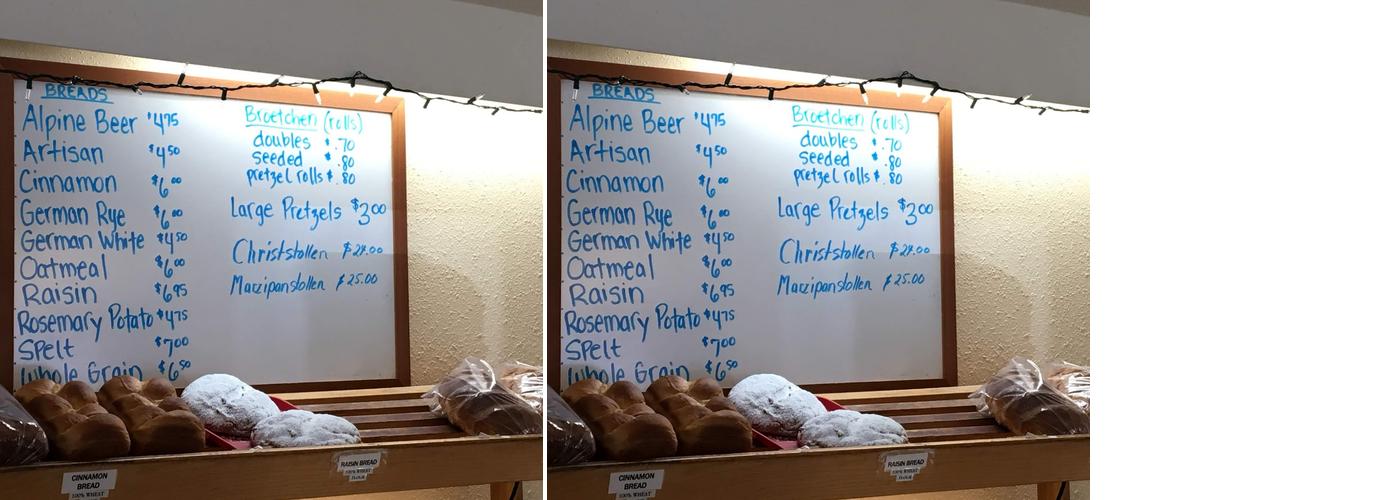 BREADS
Alpine Beer $4.75
Artisan $4.50
Cinnamon $6.00
German Rye $6.00
German White $4.50
Oatmeal $6.00
Raisin $6.95
Rosemary Potato $4.75
Spelt $7.00
Whole Grain $6.50
Broetchen (rolls)
doubles $.70
seeded $.80
pretzel rolls $.80
Large Pretzels $3.00
Christstollen
Marzipanstollen $25.00
CINNAMON
BREAD
100% WHEAT
RAISIN BREAD
100% WHEAT
BREADS
Alpine Beer $4.75
Artisan $4.50
Cinnamon $6.00
German Rye $6.00
German White $4.50
Oatmeal $6.00
Raisin $6.95
Rosemary Potato $4.75
Spelt $7.00
Whole Grain $6.50
Broetchen (rolls)
doubles $.70
seeded $.80
pretzel rolls $.80
Large Pretzels $3.00
Christstollen
Marzipanstollen $25.00
CINNAMON
BREAD
100% WHEAT
RAISIN BREAD
100% WHEAT